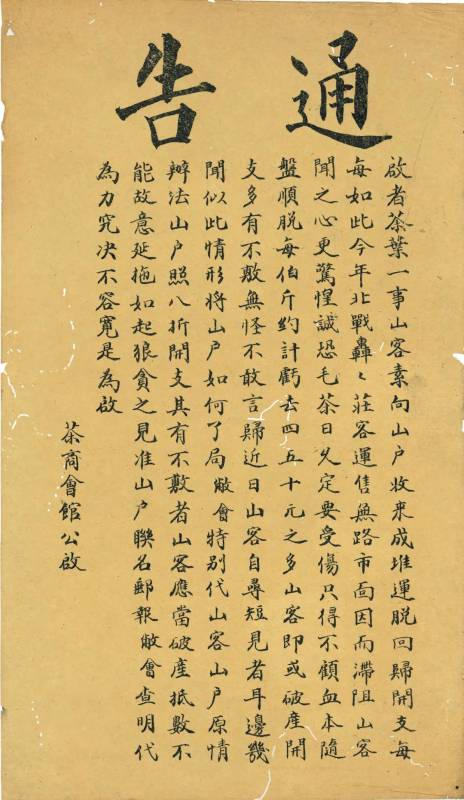 通告
啟者茶葉一事山客素向山户收来成堆運脱回歸開支每
每如此今年北戰轟々莊客運售無路市面因而滯阻山客
聞之心更驚惶誠恐毛茶日久定要受傷只得不顧血本隨
盤順脱每伯斤約計虧去四五十元之多山客即或破產開
支多有不敷無怪不敢言歸近日山客自尋短見者耳邊幾
聞似此情形將山户如何了局敝會特别代山客山户原情
辦法山户照八折開支其有不敷者山客應當破產抵數不
能故意延拖如起狼貪之見准山户聯名郵報敝會查明代
為力究决不容寬是為啟
茶商會館公啟